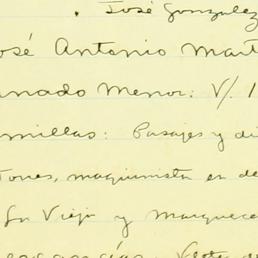 José Gonzalez
José Antonio Mart
Ganado Menor: V/. 1
millas: Pasajes y di
Torres, maquinista en de
La Vieja y